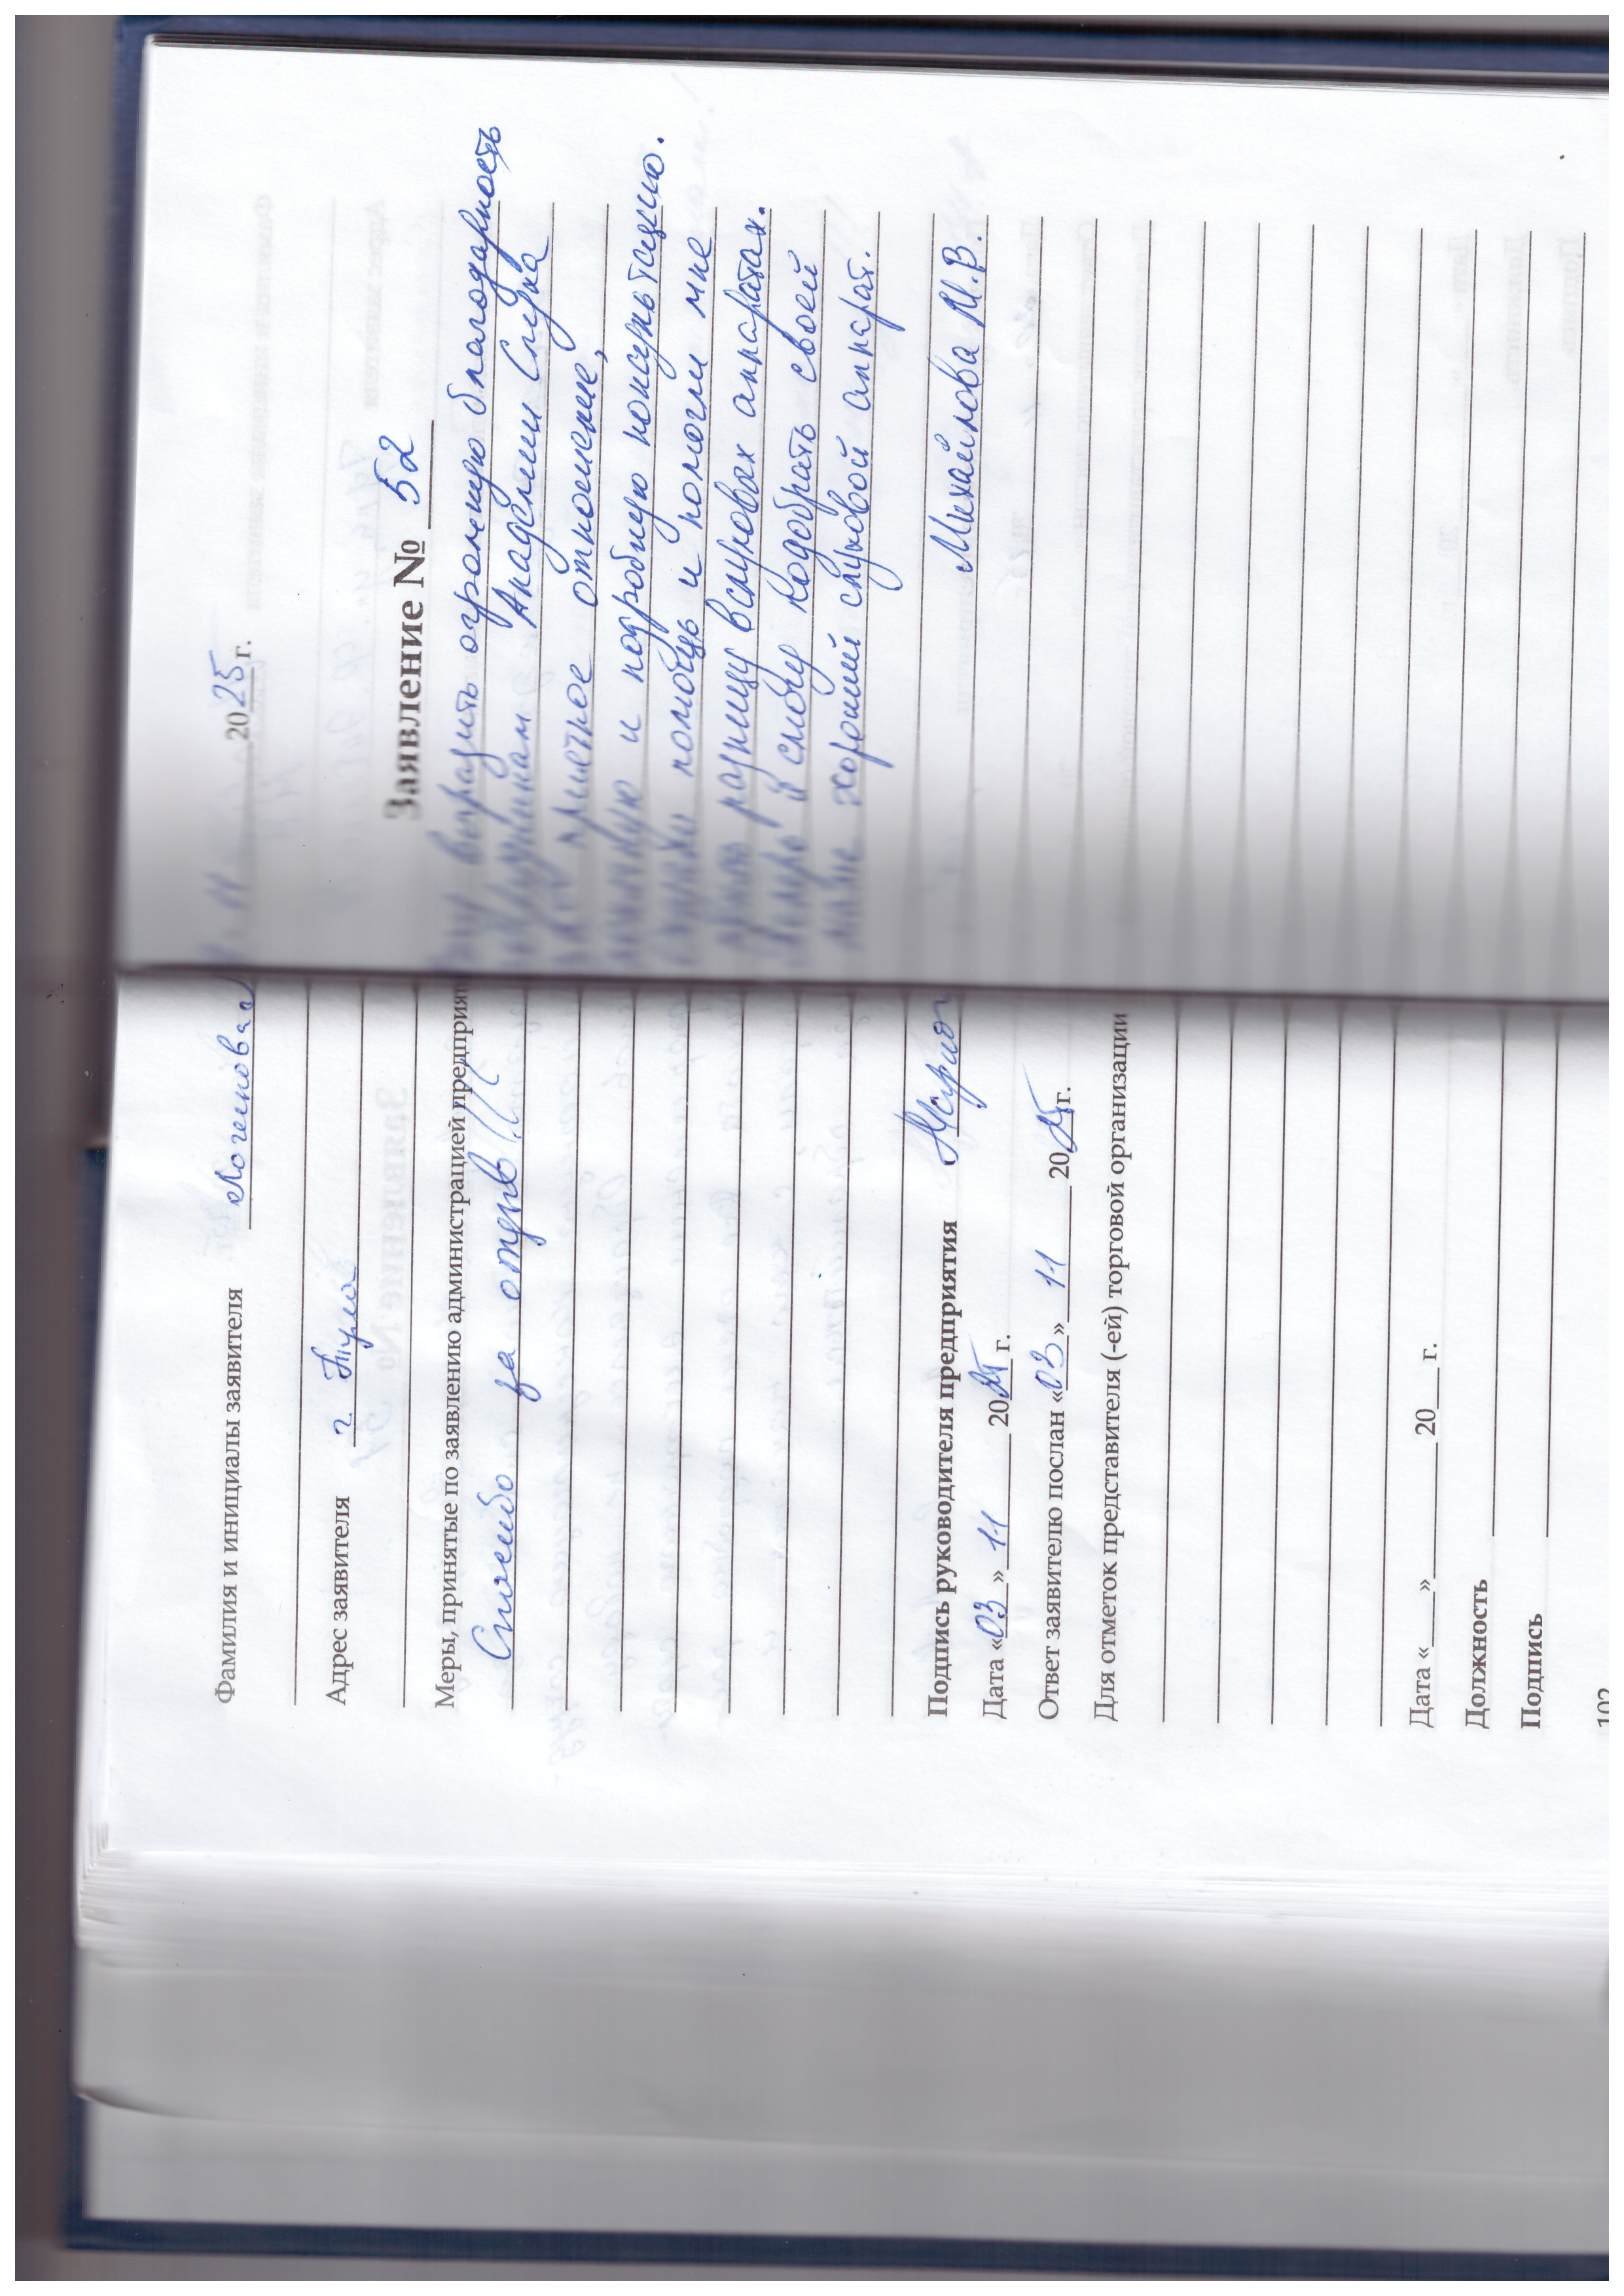 Фамилия и инициалы заявителя
Адрес заявителя г. Тула
Меры, принятые по заявлению администрацией предприят
Спасибо за отзыв!!!
Подпись руководителя предприятия
Дата «03» 11 2025 г.
Ответ заявителю послан «03» 11 2025 г.
Для отметок представителя (-ей) торговой организации
Дата «___»________20___г.
Должность
Подпись
102
2025 г.
Заявление № 52
выразить огромную благодарность
сотрудникам Академии Слуха
за приятное отношение,
и подробную консультацию.
помощь и помогли мне
разницу в слуховых аппаратах.
Теперь я смогу подобрать своей
маме хороший слуховой аппарат.
Михайлова М.В.